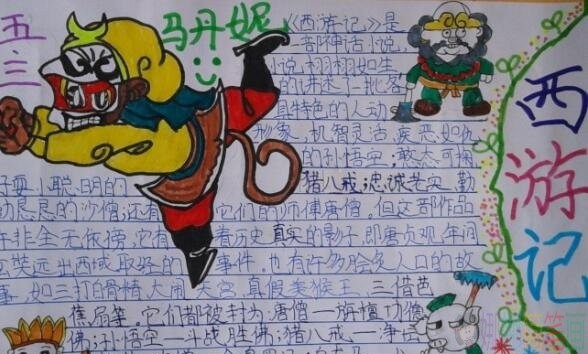 五
三
马丹妮
《西游记》是
一部神话小说,
小说栩栩如生
的讲述了一批各
具特色的人动
形象、机智灵活、疾恶如仇
的孙悟空;敢
子耍小聪明的 猪八戒;忠诚老实、勤
勤恳恳的沙僧;还有 它们的师傅唐僧。但这部作品
并非全无依傍,它有 着历史真实的影子,即唐贞观年间
玄奘远出西域取经的 事件。也有许多脍炙人口的故
事,如三打白骨精、大闹 天宫、真假美猴王、三借芭
蕉扇等。它们都被封为:唐僧一旃檀功德
佛;孙悟空一斗战胜佛;猪八戒一净坛
西
游
记